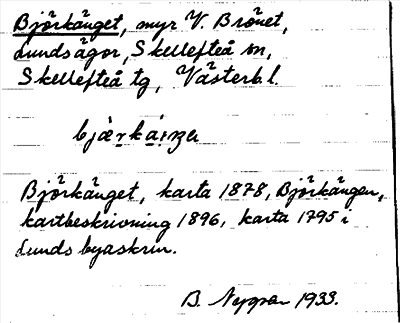 Björkänget, myr V. Brönet,
Lundsägor, Skellefteå sn,
Skellefteå tg, Västerb l.
Björkänget, karta 1878, Björkängen,
kartbeskrivning 1896, karta 1795 i
Lunds byaskrin.
B. Nygren 1933.